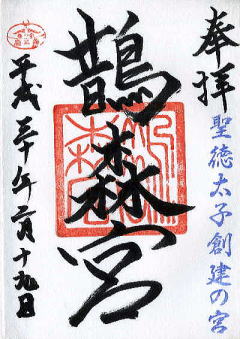 奉拝
聖徳太子創建の宮
鵲森宮
平成三十年二月十九日